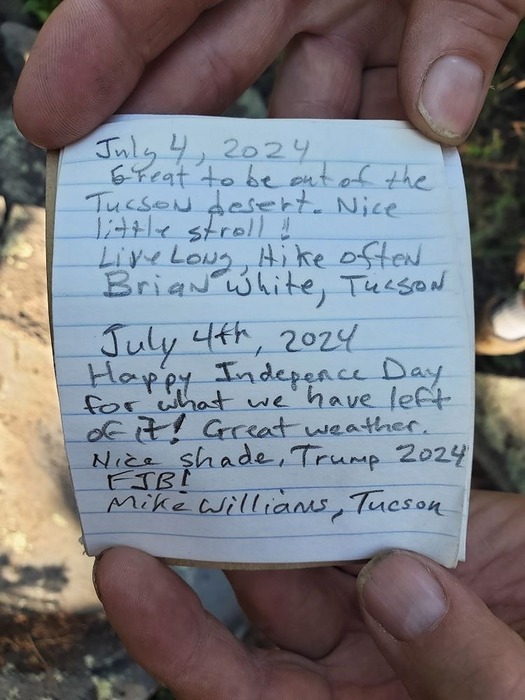 July 4, 2024
Great to be out of the
Tucson desert. Nice
little stroll!
Live Long, Hike often
Brian White, Tucson
July 4th, 2024
Happy Indepence Day
for what we have left
of it! Great weather.
Nice shade, Trump 2024
FJB!
Mike Williams, Tucson